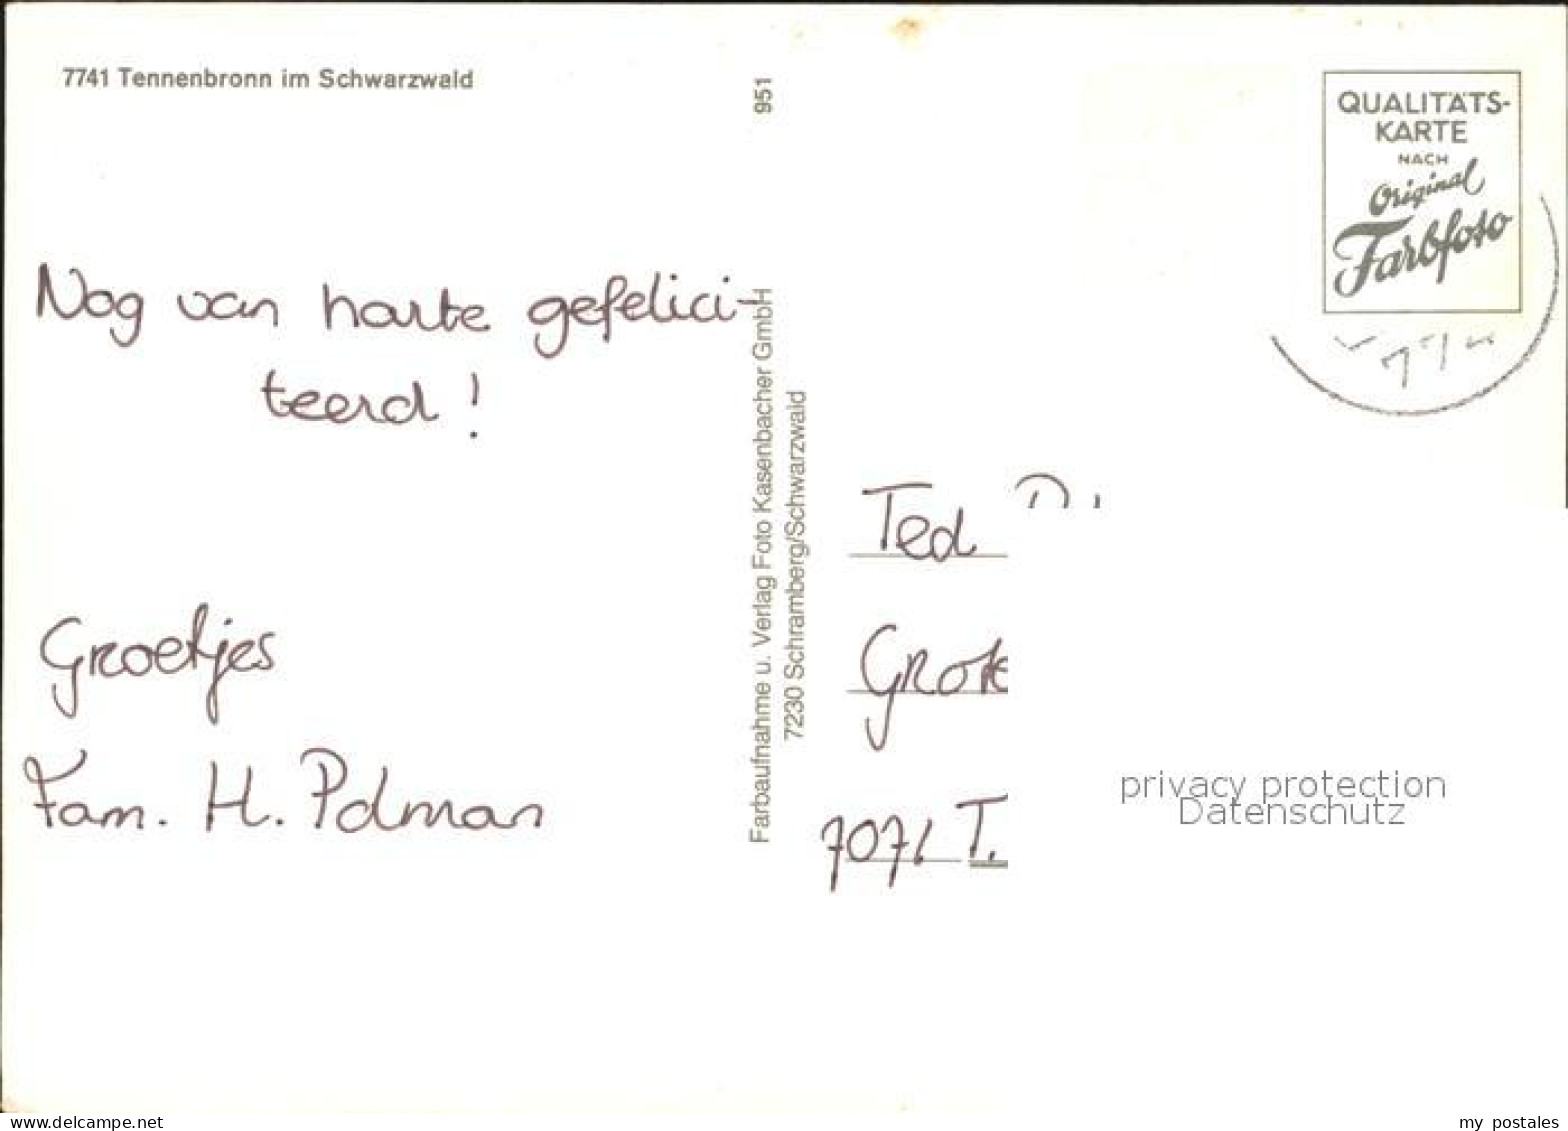 7741 Tennenbronn im Schwarzwald
951
QUALITÄTS-
KARTE
NACH
Original
Farbfoto
Nog van harte gefelici-
teerd!
Groetjes
Fam. H. Polman
Farbaufnahme u. Verlag Foto Kasenbacher GmbH
7230 Schramberg/Schwarzwald
Ted
Grote
7071 T.
privacy protection
Datenschutz
www.delcampe.net
my_postales